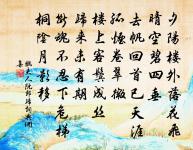 夕陽樓外落花飛
晴空碧四垂
去帆回首已天涯
孤煙卷翠微
樓上客鬢成絲
歸來未有期
斷魂不忍下危梯
桐陰月影移
魏夫人阮郎歸